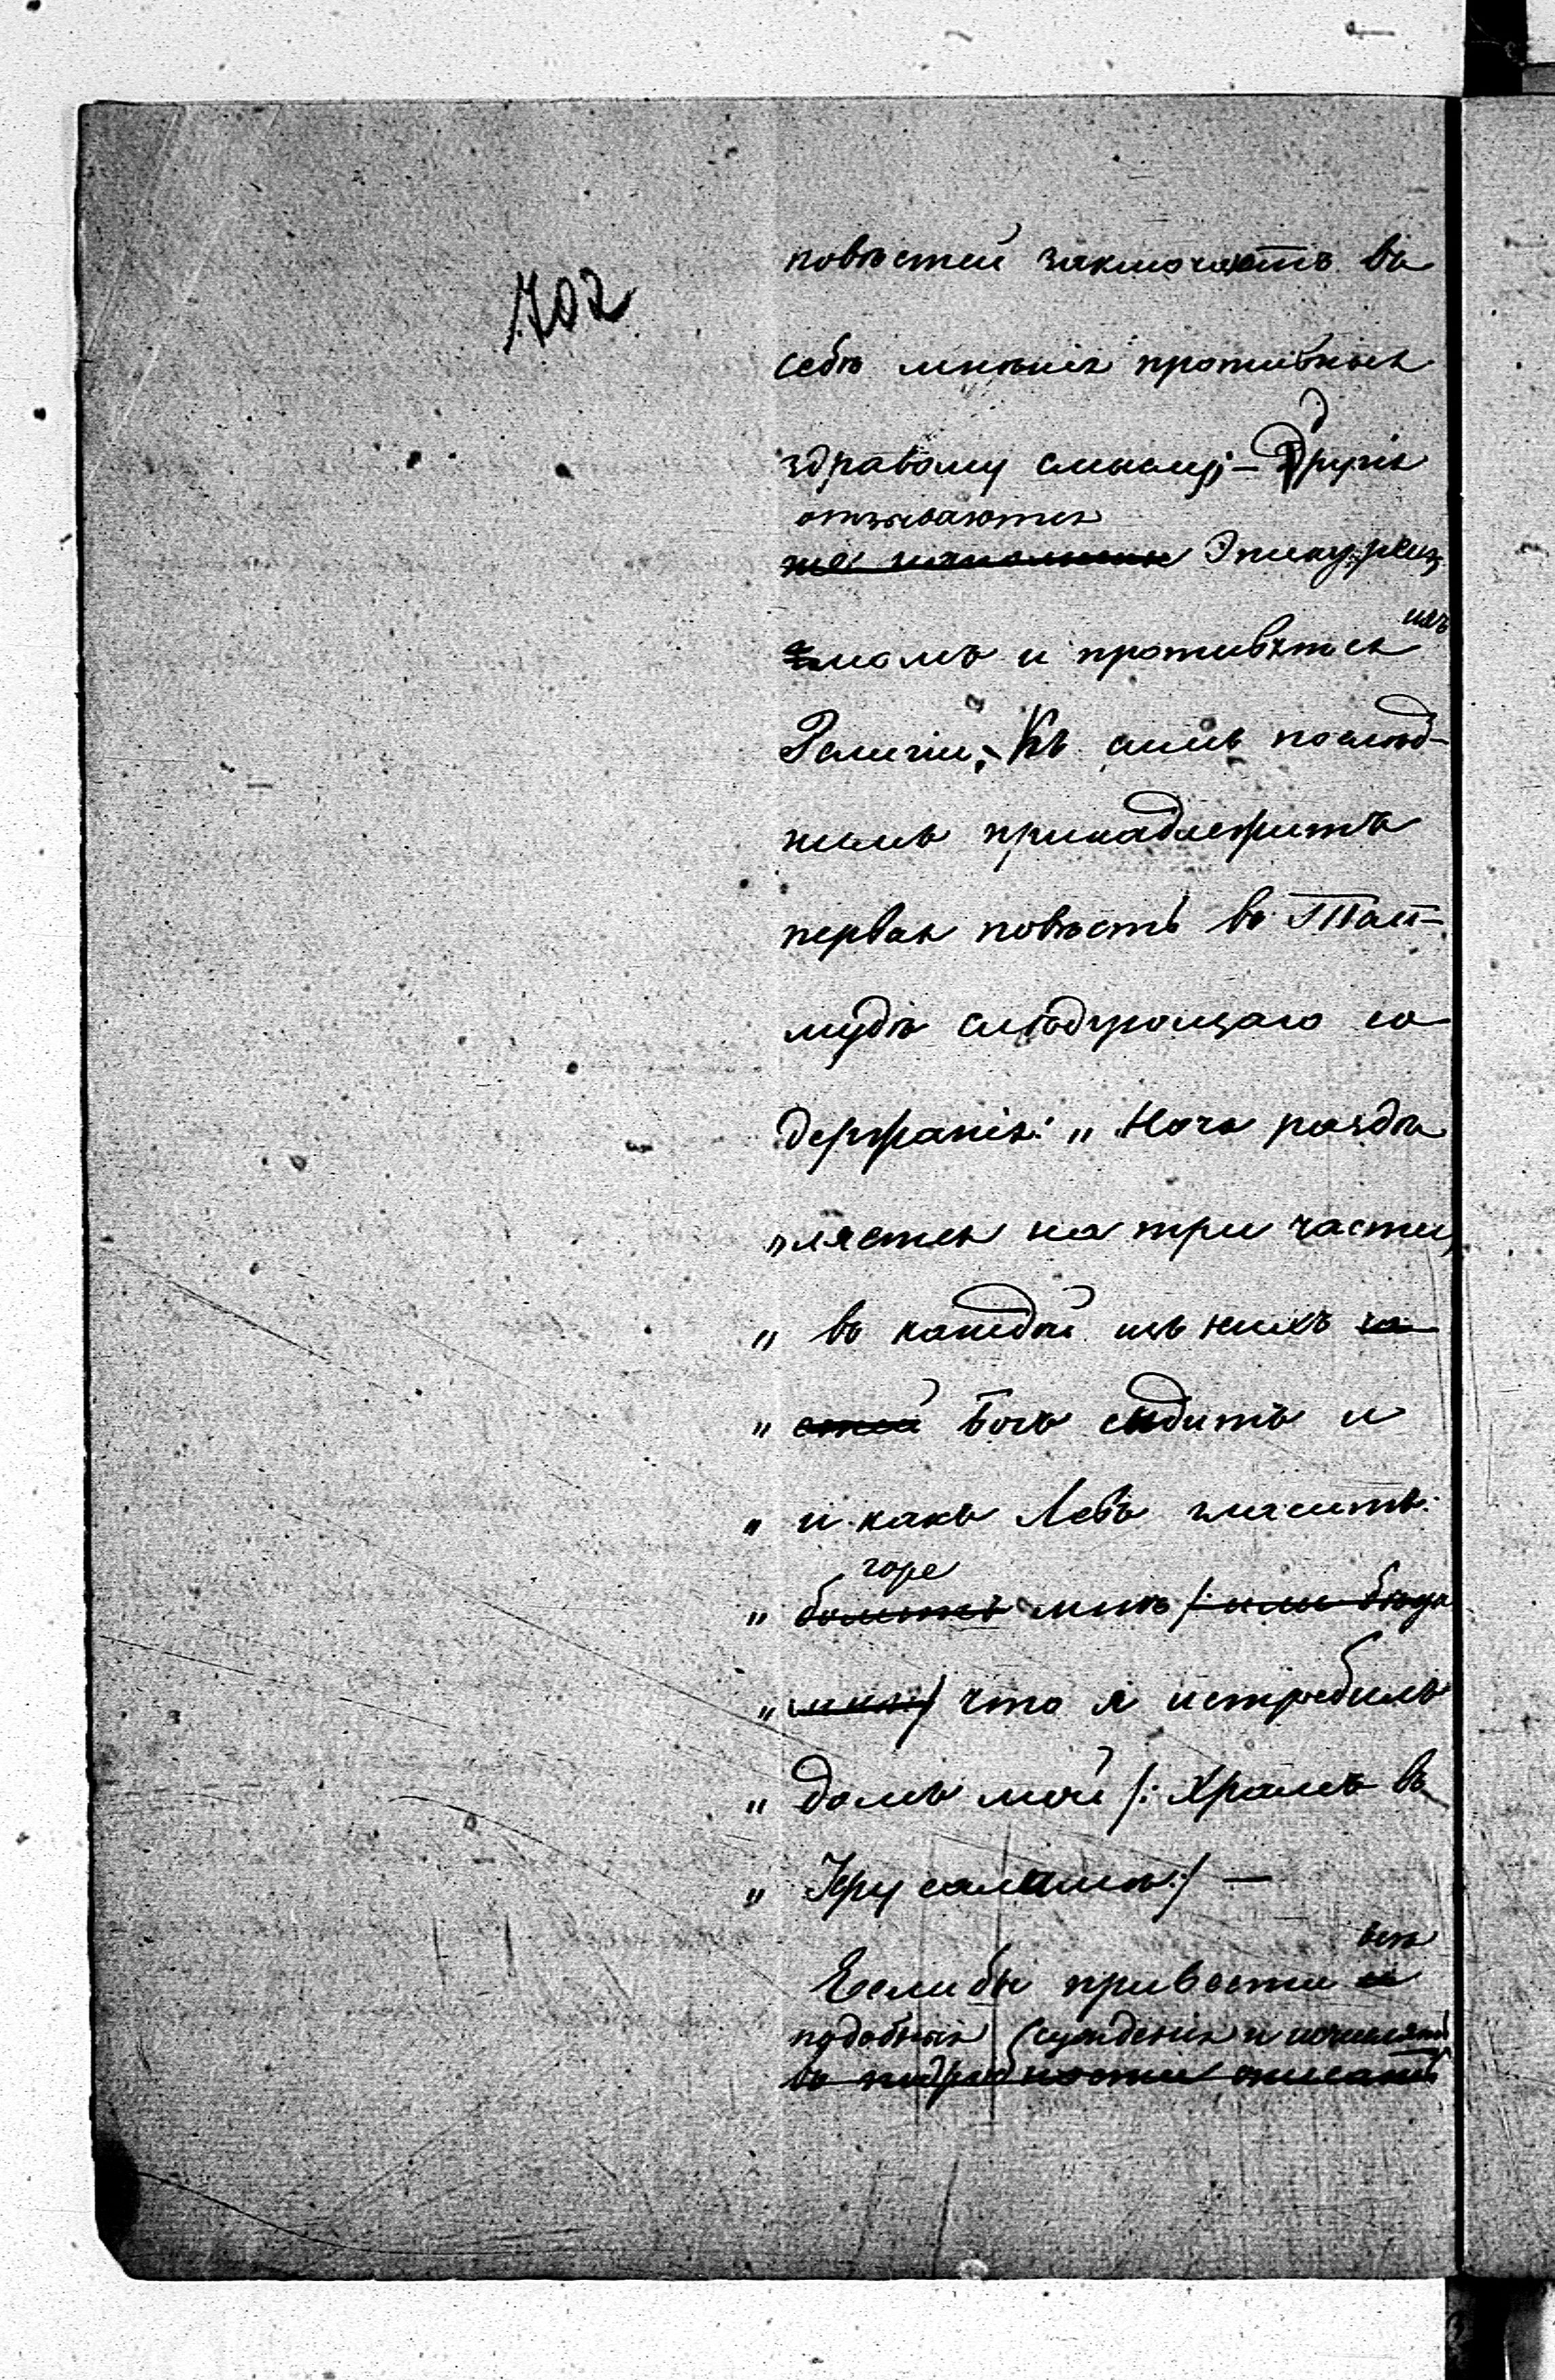 702
повѣстей заключаютъ въ
себѣ мнѣнія противныя
здравому смыслу; — другія
отзываются
же наполнены Эпикуреиз
момъ и противятся
Религіи, Къ симъ послѣд-
нимъ принадлежитъ
первая повѣсть въ Тал-
мудѣ слѣдующаго со
держанія: „ Ночь раздѣ
„ ляется на три части,
„ въ каждой изъ нихъ ча
„ стей Богъ сидитъ и
„ и какъ Левъ гласитъ:
горе
„ мнѣ /: или бѣда
„ мнѣ :/ что я истребилъ
„ домъ мой /: Храмъ въ
„ Іерусалимѣ :/ —
всѣ
Если бы привести
подобныя сужденія и исчислять
въ подробности описать